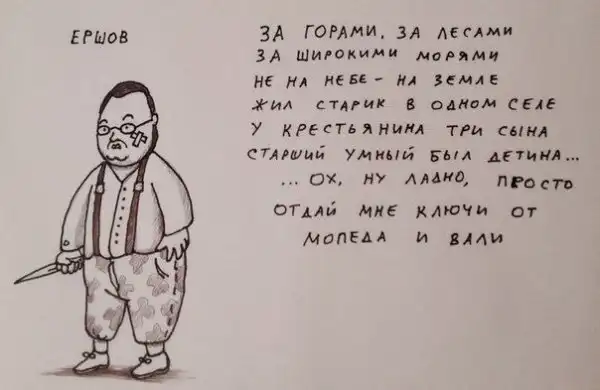 ЕРШОВ
ЗА ГОРАМИ, ЗА ЛЕСАМИ
ЗА ШИРОКИМИ МОРЯМИ
НЕ НА НЕБЕ - НА ЗЕМЛЕ
ЖИЛ СТАРИК В ОДНОМ СЕЛЕ
У КРЕСТЬЯНИНА ТРИ СЫНА
СТАРШИЙ УМНЫЙ БЫЛ ДЕТИНА...
... ОХ, НУ ЛАДНО, ПРОСТО
ОТДАЙ МНЕ КЛЮЧИ ОТ
МОПЕДА И ВАЛИ